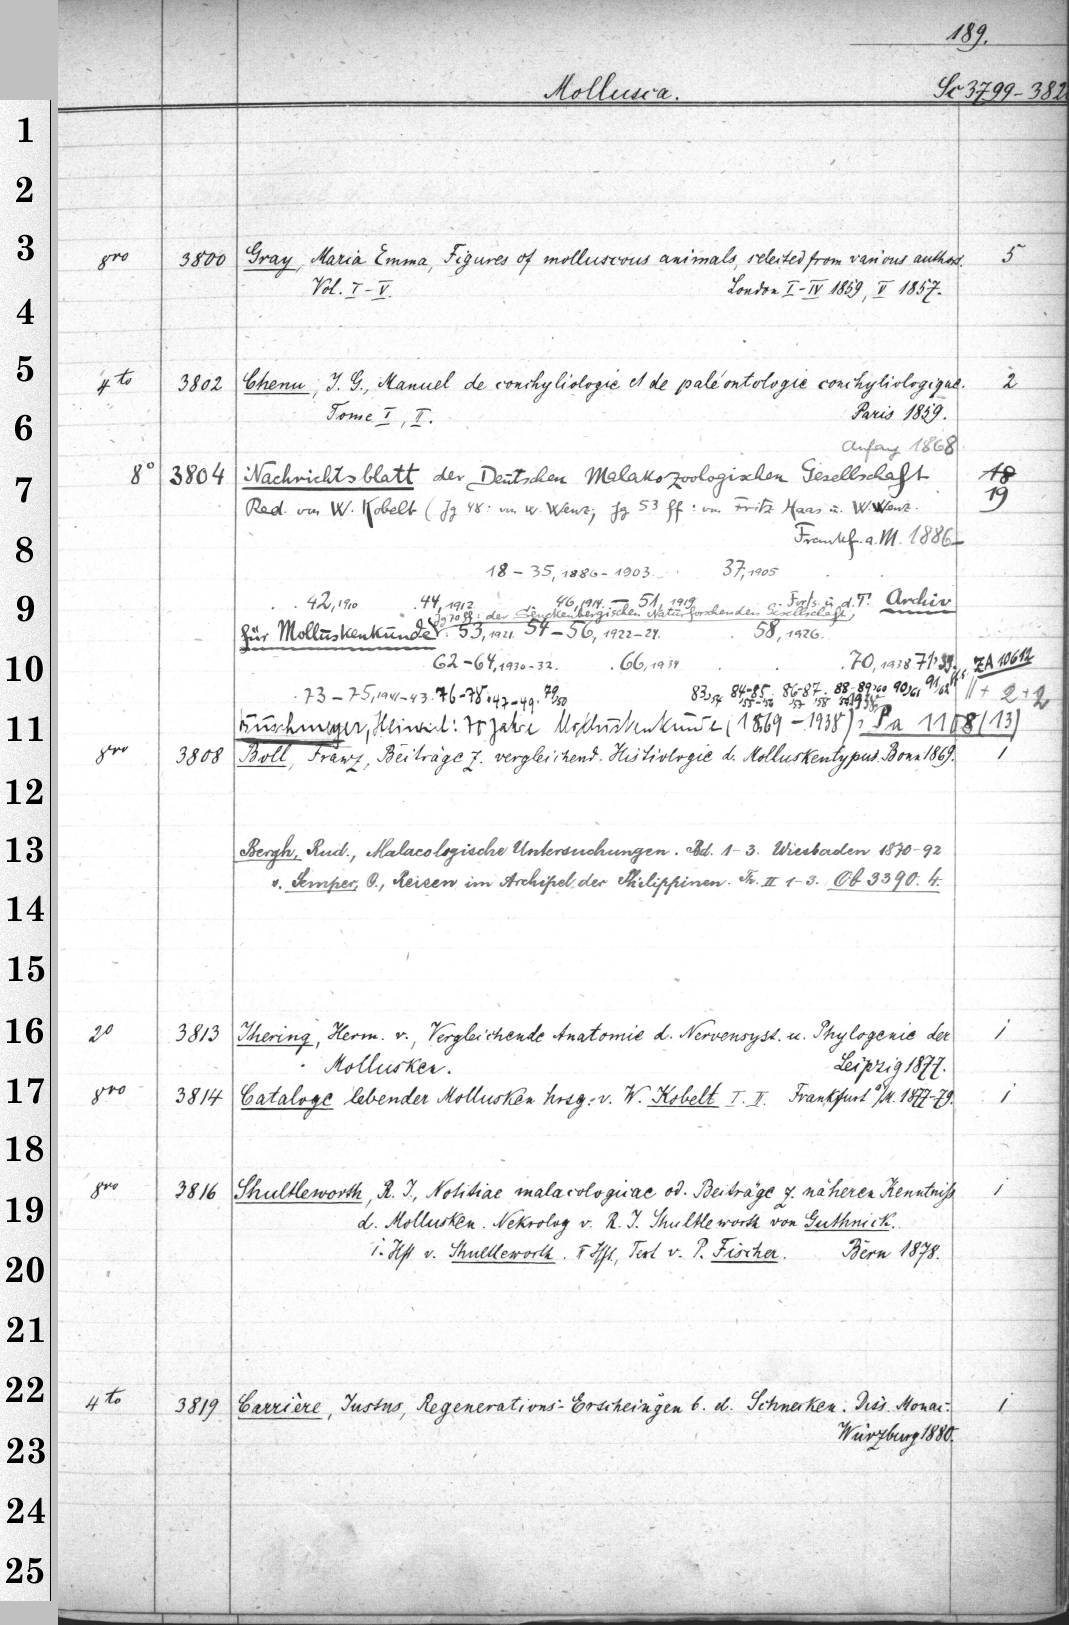 189.
Mollusca. Sc 3799-382
1
2
3
8vo 3800 Gray, Maria Emma, Figures of molluscous animals, selected from various authors. 5
Vol. I-V. London I-IV 1859, V 1857.
4
5
4to 3802 Chenu, J. G., Manuel de conchyliologie et de paléontologie conchyliologique. 2
6
Tome I, II. Paris 1859.
Anfang 1868
7
8° 3804 Nachrichtsblatt der Deutschen Malakozoologischen Gesellschaft 18
19
Red. von W. Kobelt (Jg 48: von W. Wenz; Jg 53 ff: von Fritz Haas u. W. Wenz.
8
Frankf. a. M. 1886-
18-35, 1886-1903. 37, 1905
9
42, 1910 44, 1912 46, 1914 - 51, 1919 Forts. u. d. T. Archiv
Jg 70 ff: der Senckenbergischen Naturforschenden Gesellschaft,
für Molluskenkunde. 53, 1921. 54-56, 1922-24. 58, 1926.
10
62-64, 1930-32. 66, 1934 70, 1938 71, 39. ZA 10612
73-75, 1941-43. 76-78, 47-49. 79/50 83/54 84-85/55-56 86-87 88-89/60 90/61 91/62 11 + 2 + 2
11
Heinrich: 70 Jahre Molluskenkunde (1869-1938): Pa 1108 (13)
8vo 3808 Boll, Franz, Beiträge z. vergleichend. Histiologie d. Molluskentypus. Bonn 1869. 1
12
13
Bergh, Rud., Malacologische Untersuchungen. Bd. 1-3. Wiesbaden 1870-92
v. Semper, C., Reisen im Archipel der Philippinen. Th. II 1-3. Ob 3390. 4.
14
15
16
2° 3813 Jhering, Herm. v., Vergleichende Anatomie d. Nervensyst. u. Phylogenie der 1
Mollusken. Leipzig 1877.
17
8vo 3814 Cataloge lebender Mollusken hrsg. v. W. Kobelt I. II. Frankfurt a/M. 1877-79. 1
18
8vo 3816 Shuttleworth, R. J., Notitiae malacologicae od. Beiträge z. näheren Kenntniss 1
19
d. Mollusken. Nekrolog v. R. J. Shuttleworth von Guthnick.
1. Hft v. Shuttleworth. II Hft, Text v. P. Fischer. Bern 1878.
20
21
22
4to 3819 Carrière, Justus, Regenerations-Erscheingen b. d. Schnecken. Diss. Monac. 1
23
Würzburg 1880.
24
25